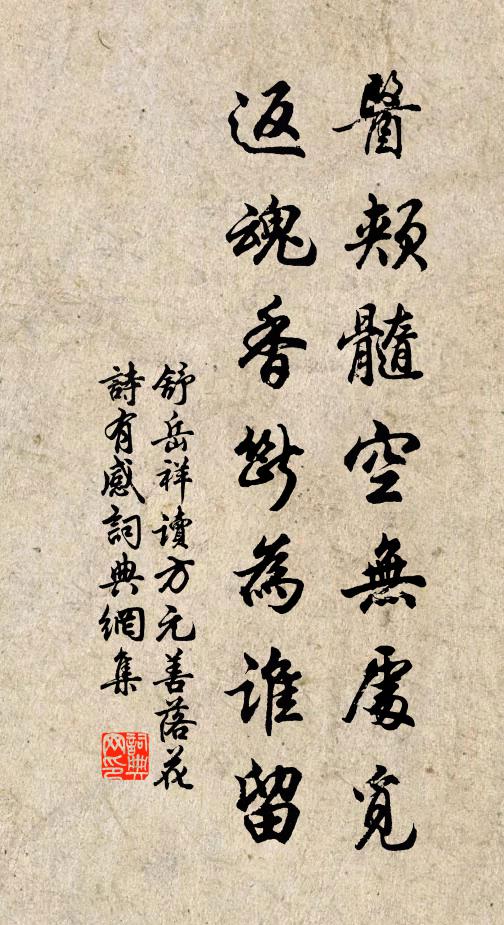 醫頰髓空無處覓
返魂香斷為誰留
舒岳祥讀方元善落花
詩有感詞典網集
詞典網印